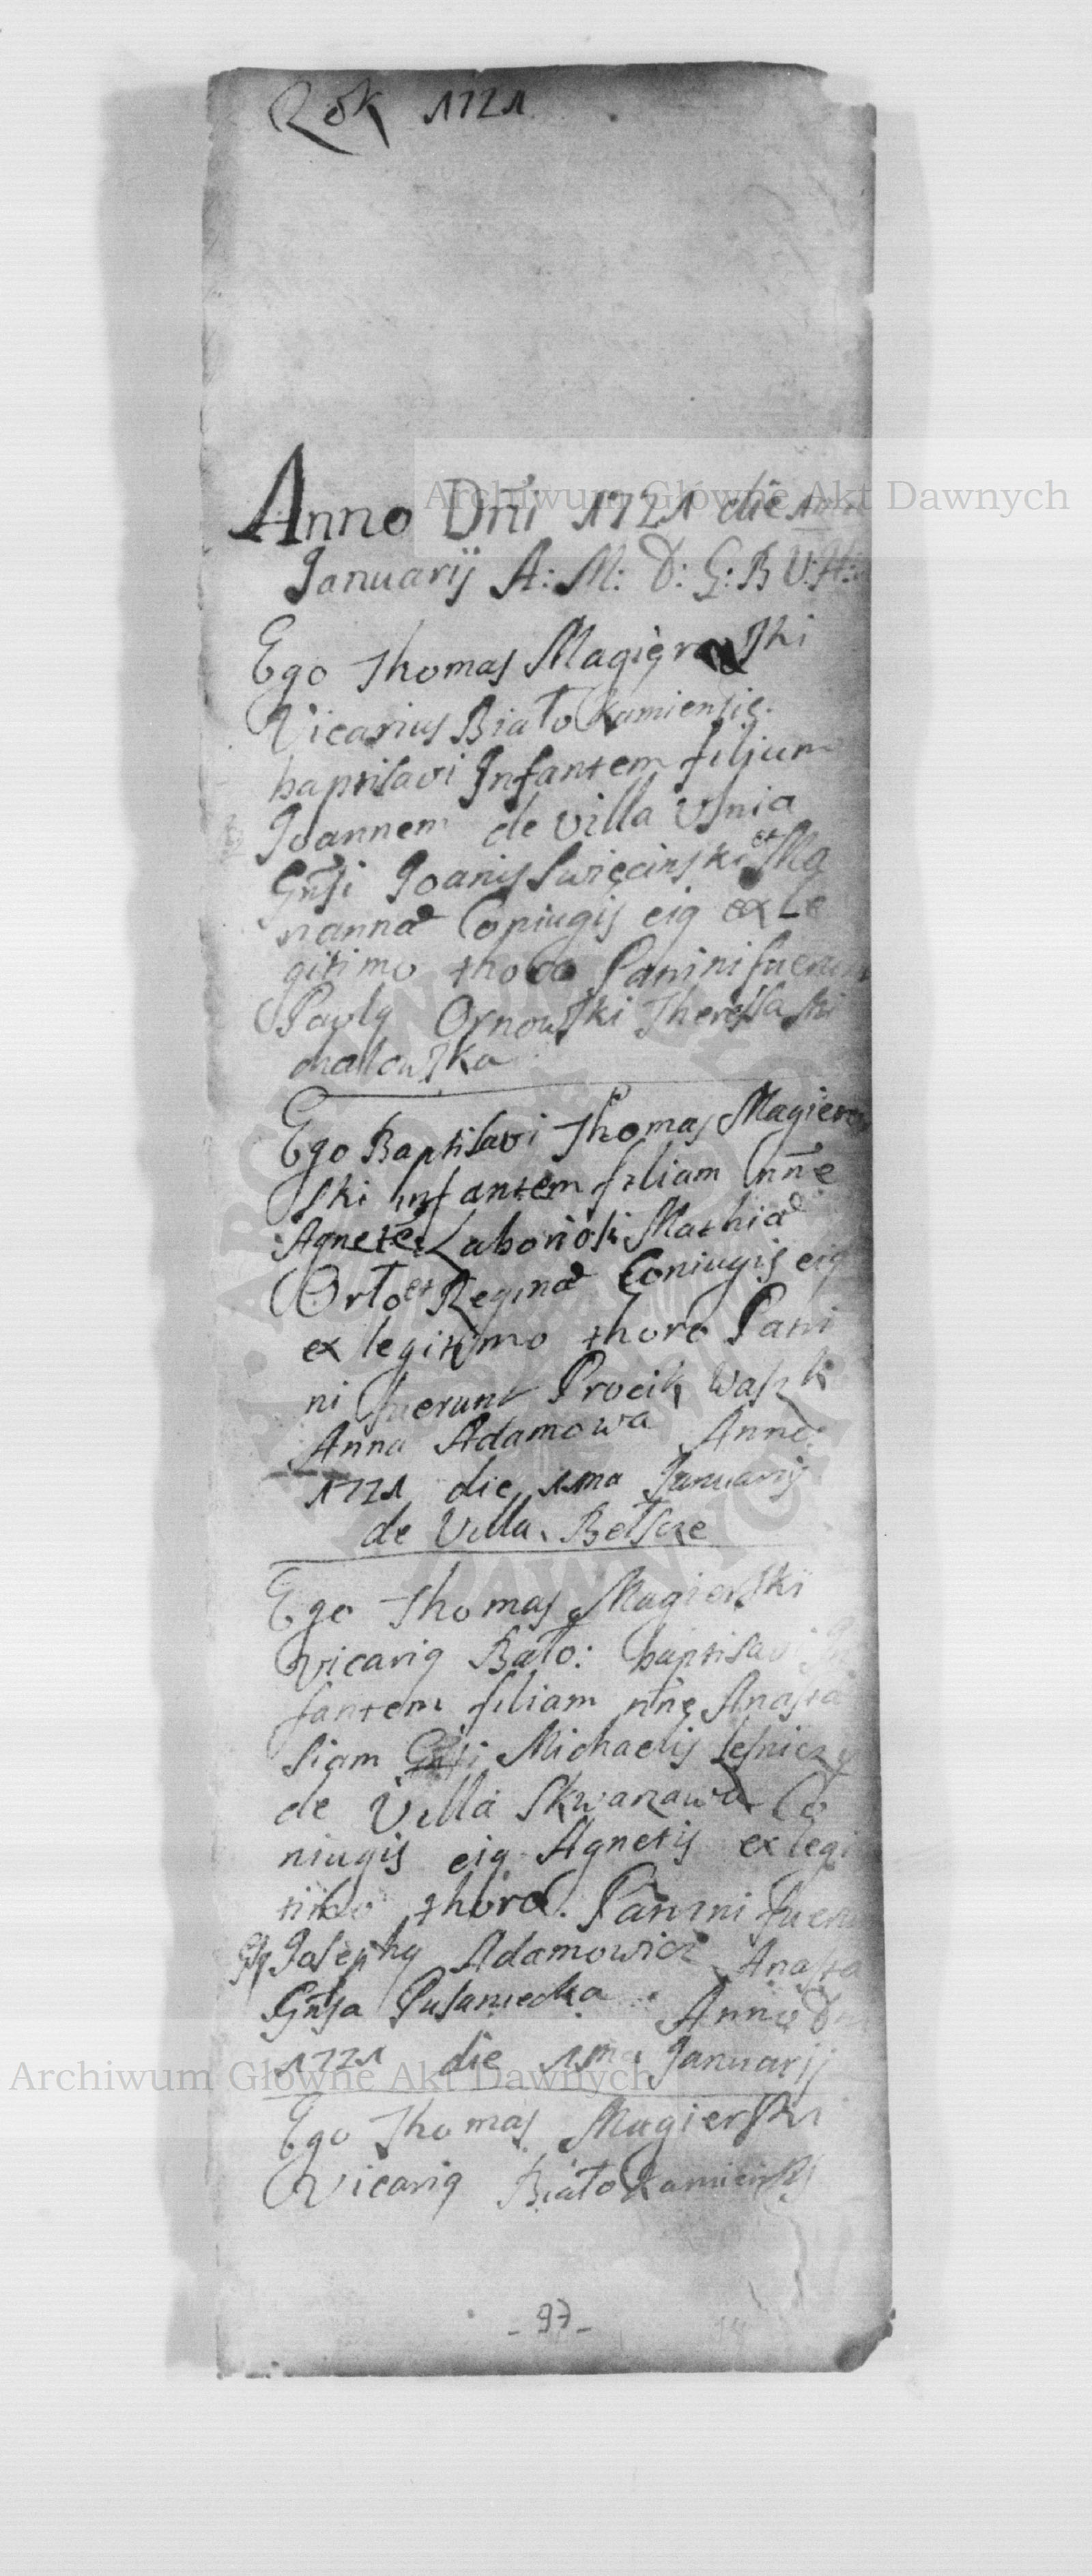 Rok 1721
Anno Dni 1721 die 1ma
Januarij A: M: D: G: B V: H:
Ego Thomas Magierowski
Vicarius BiałoKamiensis
baptisavi Infantem filium
Joannem de Villa Usnia
Gnsi Joanis Swięcinski et Ma
rianna Coniugis eig ex Le
gitimo thoro Patrini fuerunt
Paulg Ornowski Theressa Mi
chałowska
Ego Baptisavi Thomas Magierow
ski infantem filiam nne
Agnete Laboriosi Mathiæ
Orło et Reginæ Coniugis eig
ex legitimo thoro Patri
ni fuerunt Procik Waszk
Anna Adamowa Anno
1721 die 1ma Januarij
de Villa Bełsze
Ego Thomas Magierski
vicarig Biało: baptisavi In
fantem filiam nne Anasta
siam Gnsi Michaelis Lesniczy
de Villa Skwarzawa Co
niugis eig Agnetis ex legi
timo thoro. Patrini fuerunt
Gsg Josephg Adamowicz Anasta
Gnsa Pusaniecka Anno Dni
1721 die 1ma Januarij
Ego Thomas Magierski
Vicarig BiałoKamiensis
- 97 -
Archiwum Główne Akt Dawnych
Archiwum Główne Akt Dawnych